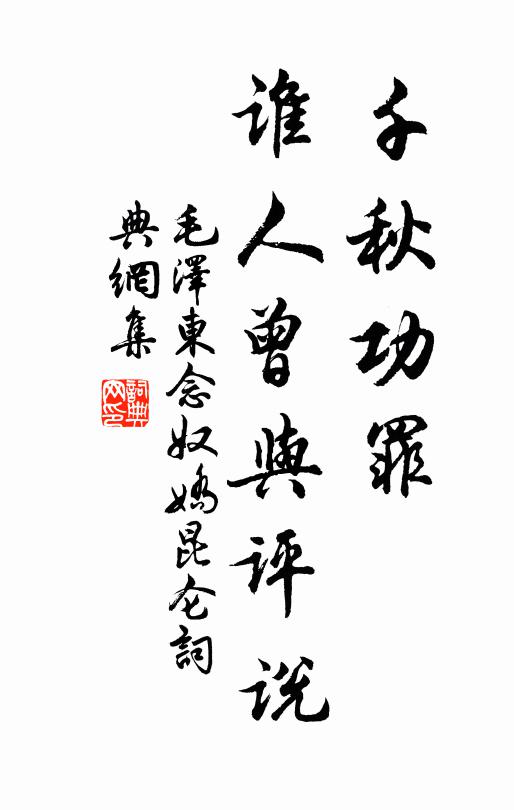 千秋功罪
谁人曾與评说
毛澤東念奴嬌昆仑詞
典網集
詞典
网印